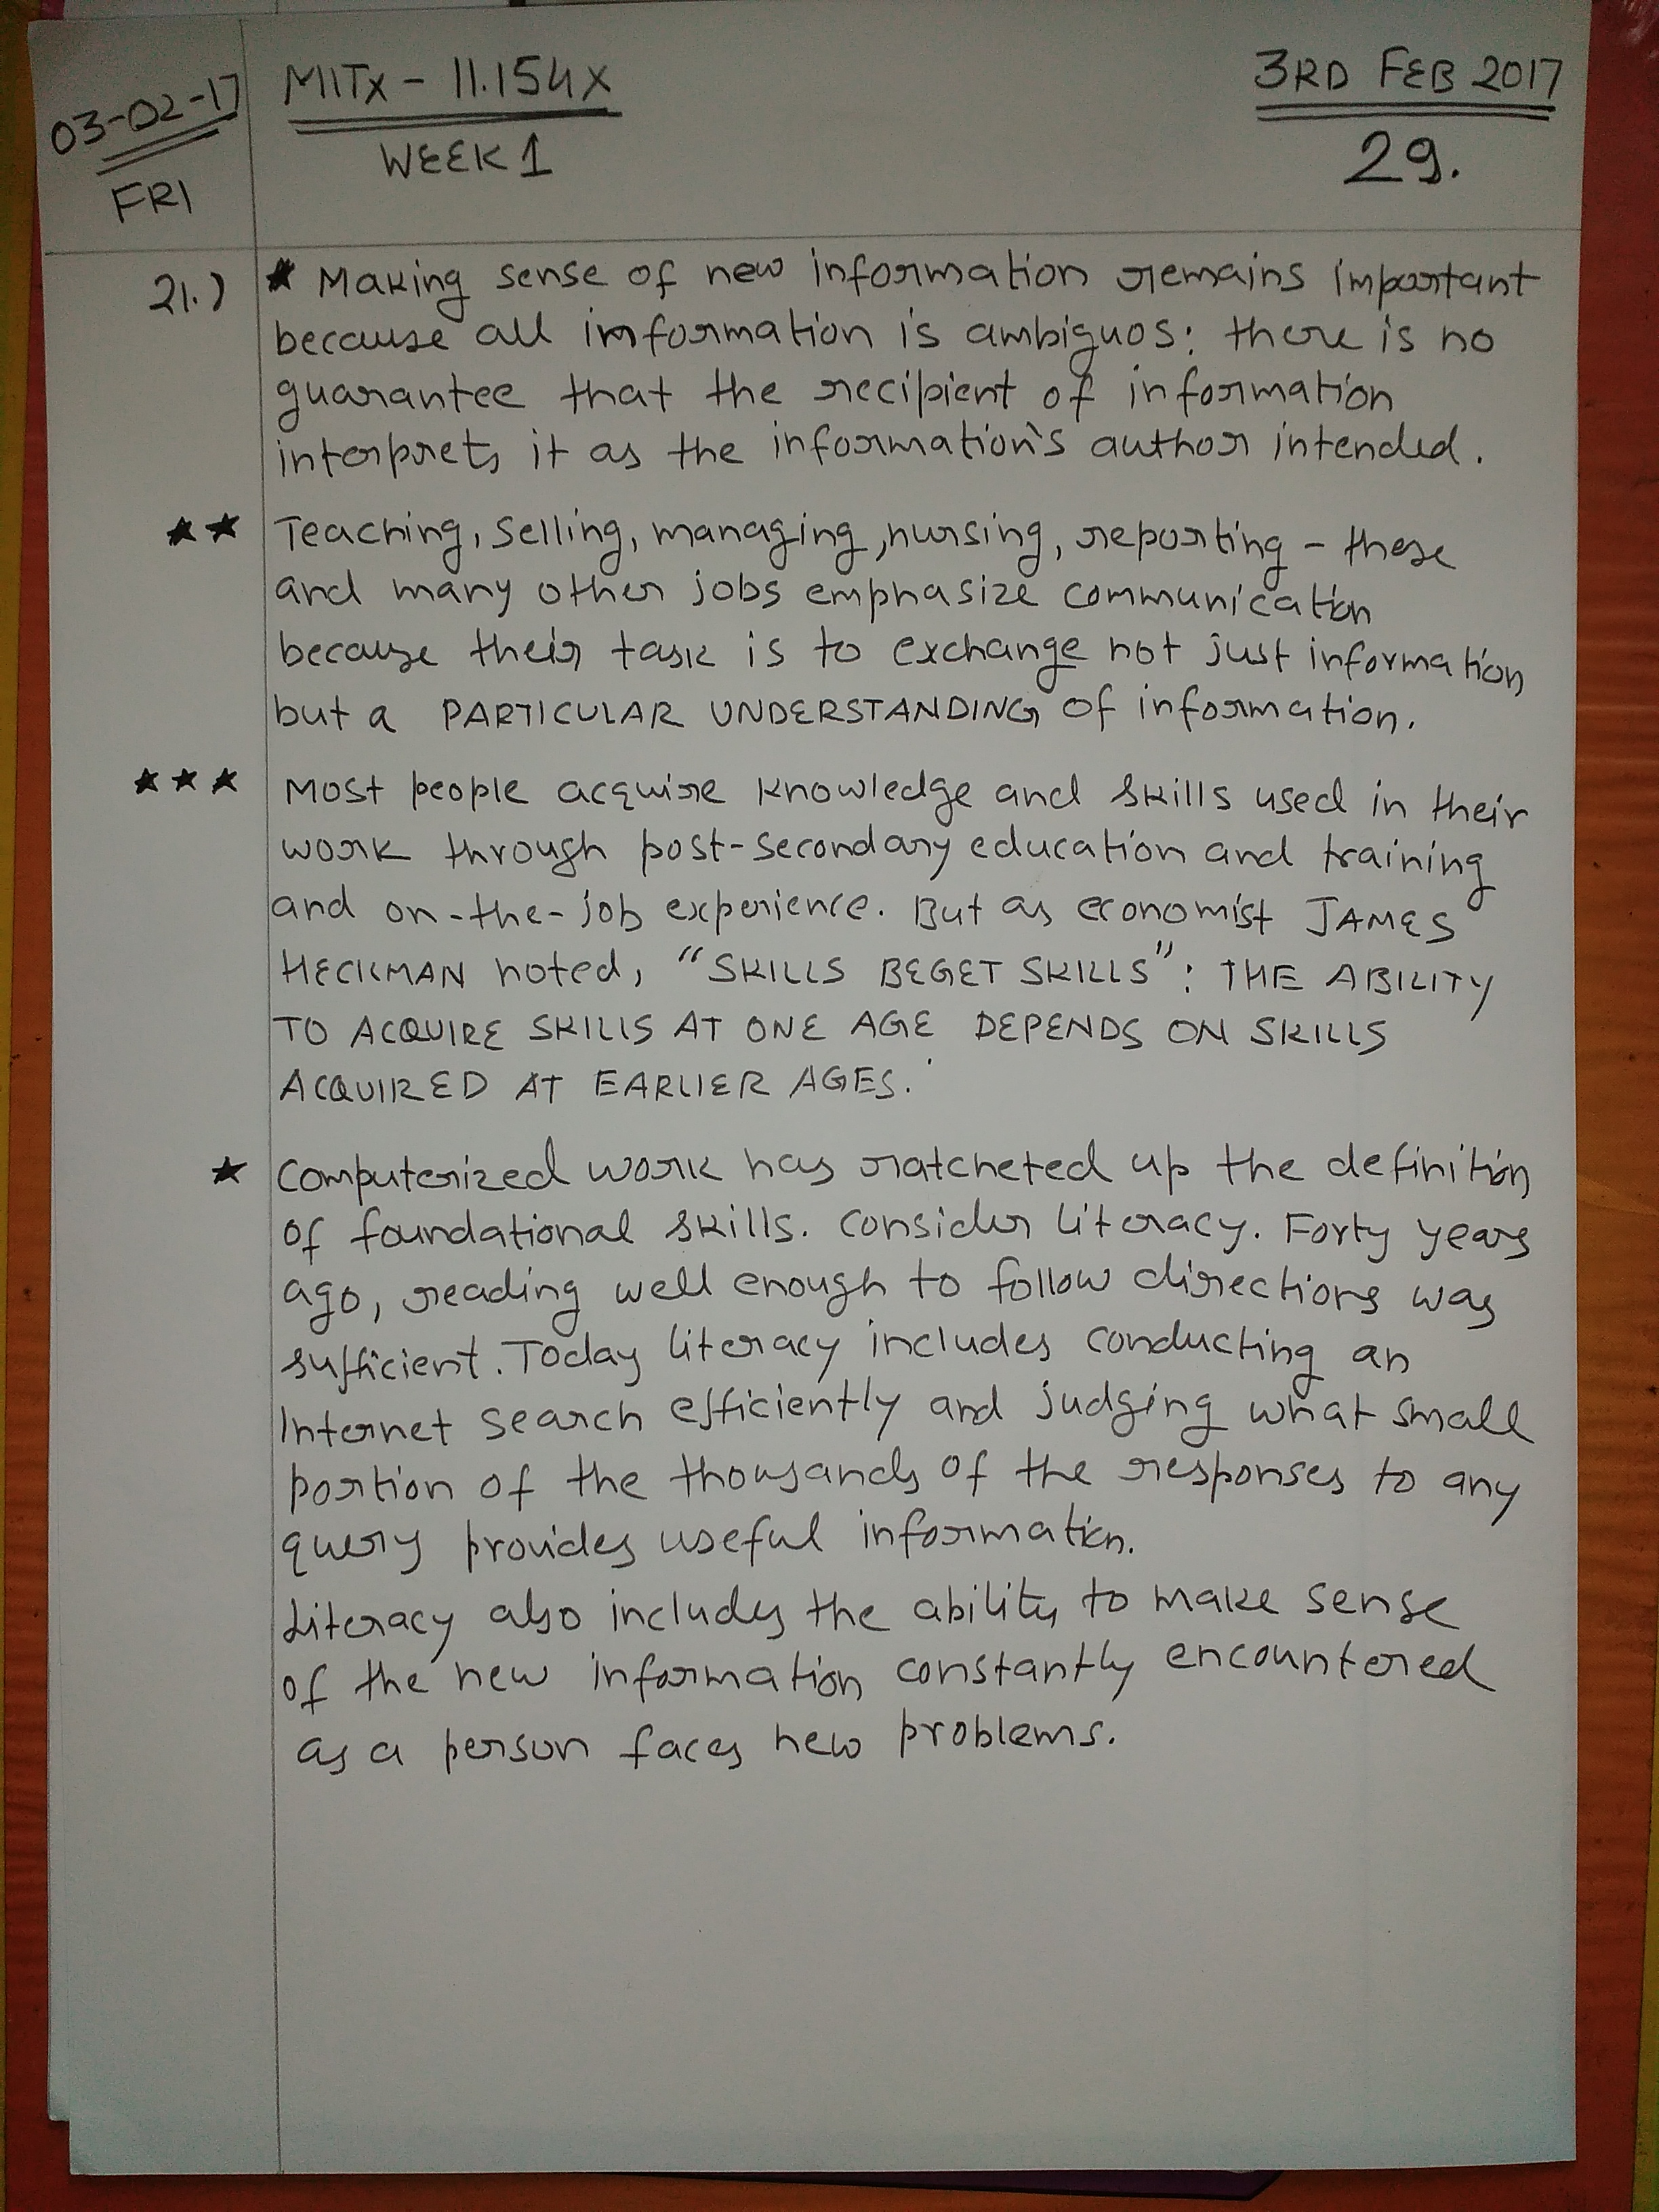 03-02-17
FRI
MITx - 11.154x
WEEK 1
3RD FEB 2017
29.
21.) ★ Making sense of new information remains important
because all information is ambiguos: there is no
guarantee that the recipient of information
interprets it as the information's author intended.
★★ Teaching, selling, managing, nursing, reporting - these
and many other jobs emphasize communication
because their task is to exchange not just information
but a PARTICULAR UNDERSTANDING of information.
★★★ Most people acquire knowledge and skills used in their
work through post-secondary education and training
and on-the-job experience. But as economist JAMES
HECKMAN noted, "SKILLS BEGET SKILLS": THE ABILITY
TO ACQUIRE SKILLS AT ONE AGE DEPENDS ON SKILLS
ACQUIRED AT EARLIER AGES.
★ Computerized work has ratcheted up the definition
of foundational skills. Consider literacy. Forty years
ago, reading well enough to follow directions was
sufficient. Today literacy includes conducting an
Internet search efficiently and judging what small
portion of the thousands of the responses to any
query provides useful information.
Literacy also includes the ability to make sense
of the new information constantly encountered
as a person faces new problems.